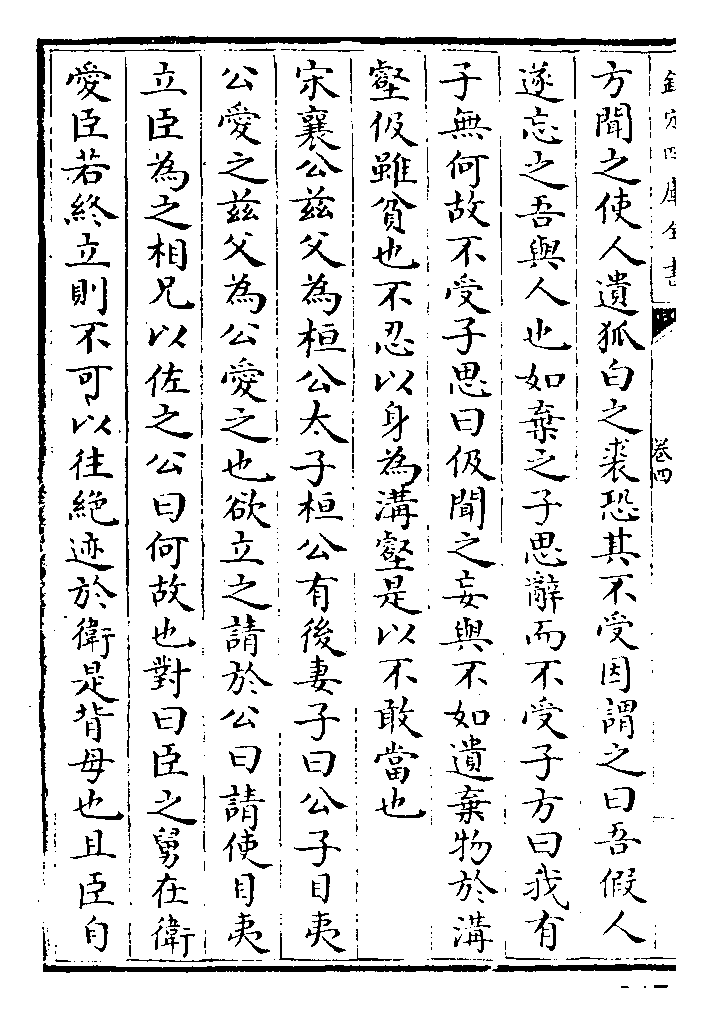 欽定四庫全書
卷四
方聞之使人遺狐白之裘恐其不受因謂之曰吾假人
遂忘之吾與人也如棄之子思辭而不受子方曰我有
子無何故不受子思曰伋聞之妄與不如遺棄物於溝
壑伋雖貧也不忍以身為溝壑是以不敢當也
宋襄公茲父為桓公太子桓公有後妻子曰公子目夷
公愛之茲父為公愛之也欲立之請於公曰請使目夷
立臣為之相兄以佐之公曰何故也對曰臣之舅在衛
愛臣若終立則不可以往絶迹於衛是背母也且臣自